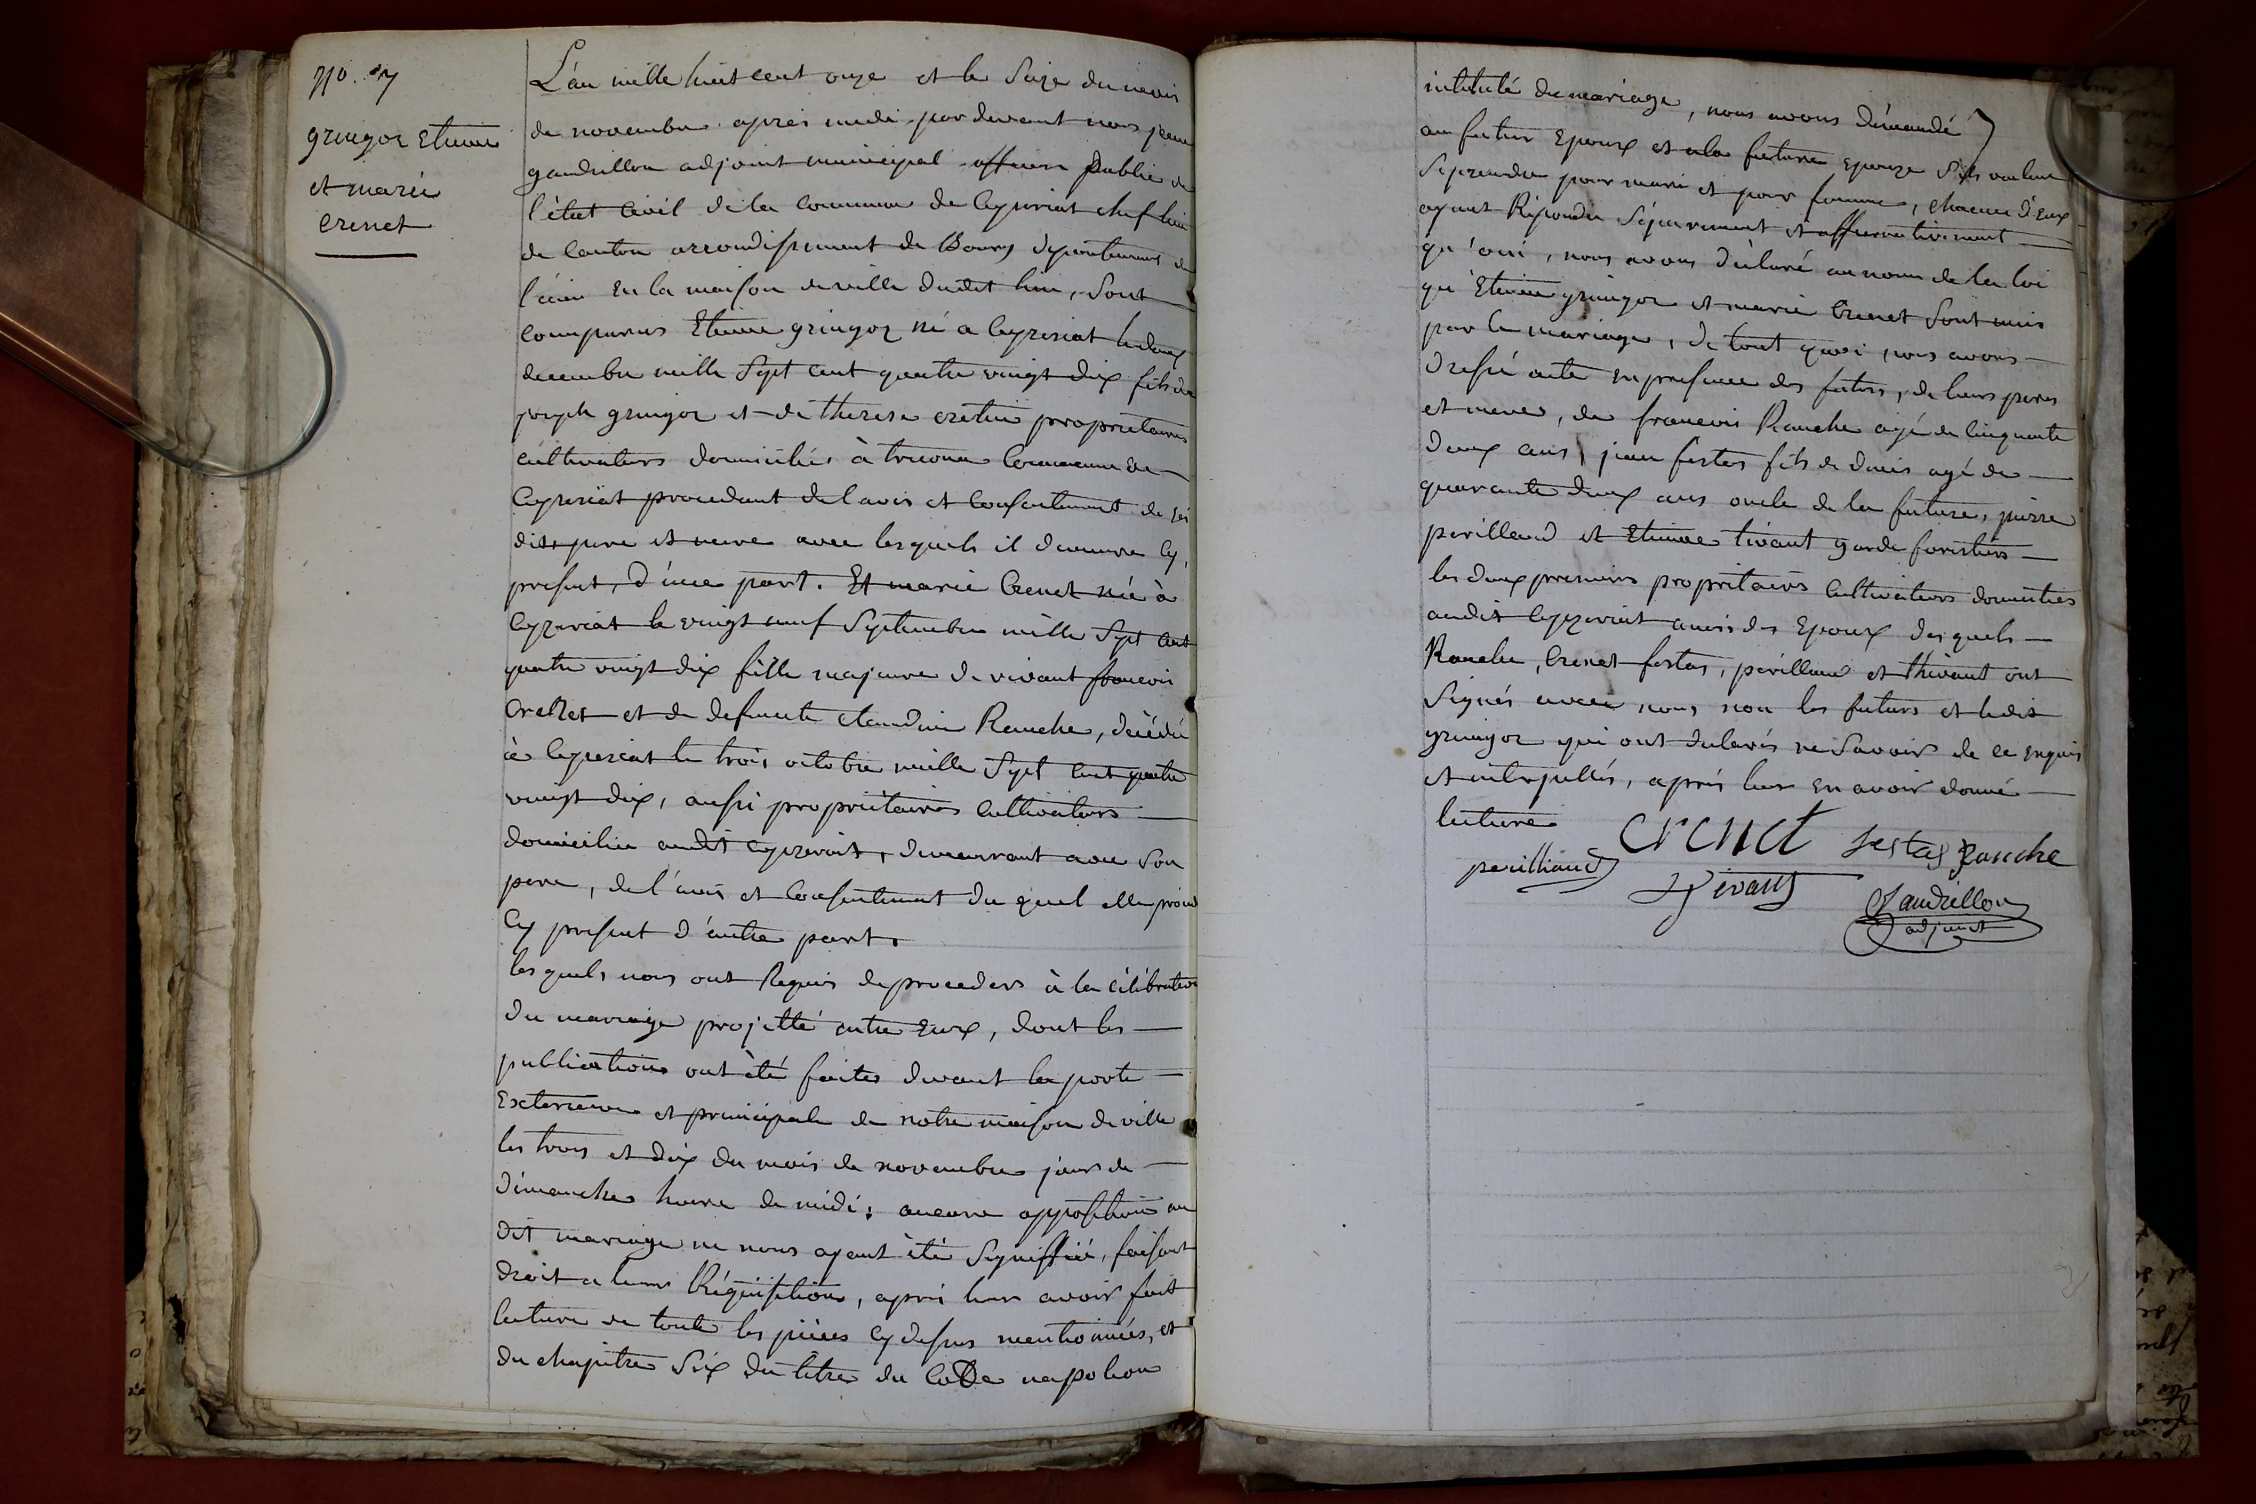 No. 27
gringoz Etienne
et marie
crenet
L'an mille huit cent onze et le Seize du mois
de novembre après midi, par devant nous jean
gandrillon adjoint municipal officier public de
l'état Civil de la commune de Ceyzeriat chef lieu
de Canton arrondissement de Bourg département de
l'ain En la maison de ville dudit lieu, Sont
comparus Etienne gringoz né a Ceyzeriat le deux
decembre mille Sept cent quatre vingt dix fils de
joseph gringoz et de therese cretin propriétaires
cultivateurs domiciliés à treconna Commune de
Ceyzeriat procedant de l'avis et Consentement de ses
dits pere et mere avec lesquels il demeure Cy
present, d'une part. Et marie Crenet née à
Ceyzeriat le vingt neuf Septembre mille Sept cent
quatre vingt dix fille majeure de vivant francois
Crenet et de defuncte claudine Ranche, décédée
à Ceyzeriat le trois octobre mille Sept cent quatre
vingt dix, aussi propriétaires Cultivateurs
domicilies audit Ceyzeriat, demeurant avec Son
pere, de l'avis et Consentement du quel elle procede
Cy present d'autre part.
les quels nous ont Requis de proceder à la célébration
du mariage projetté entre Eux, dont les
publications ont été faites devant la porte
Exterieure et principale de notre maison de ville
les trois et dix du mois de novembre jours de
dimanche heure de midi; aucune opposition au
dit mariage ne nous ayant été Signiffiée, faisant
droit a leurs Réquisitions, après leur avoir fait
lecture de toute les pièces Cy dessus mentionnées, et
du chapitre Six du titre du Code napoleon
intitulé du mariage, nous avons démandé
au futur Epoux et a la future Epouze S'ils veulent
Se prendre pour mari et pour femme, chacun d'Eux
ayant Répondu Séparement et affirmativement
qu'oui, nous avons déclaré au nom de la loi
qu'Etienne gringoz et marie Crenet Sont unis
par le mariage, de tout quoi, nous avons
dressé acte en presence des futurs, de leurs peres
et mere, de francois Ranche agé de Cinquante
deux ans, jean festas fils de denis agé de
quarante deux ans oncle de la future, pierre
perilland et Etienne tivant garde forestiers
les deux premiers propriétaires Cultivateurs domiciliés
audit Ceyzeriat amis des Epoux desquels
Ranche, Crenet festas, perilland et thivant ont
Signés avec nous non les futurs et ledit
gringoz qui ont déclarés ne Savoir de ce enquis
et interpellés, après leur en avoir donné
lecture
crenet festas Ranche
perilliand
tivant
Gandrillon
adjoint